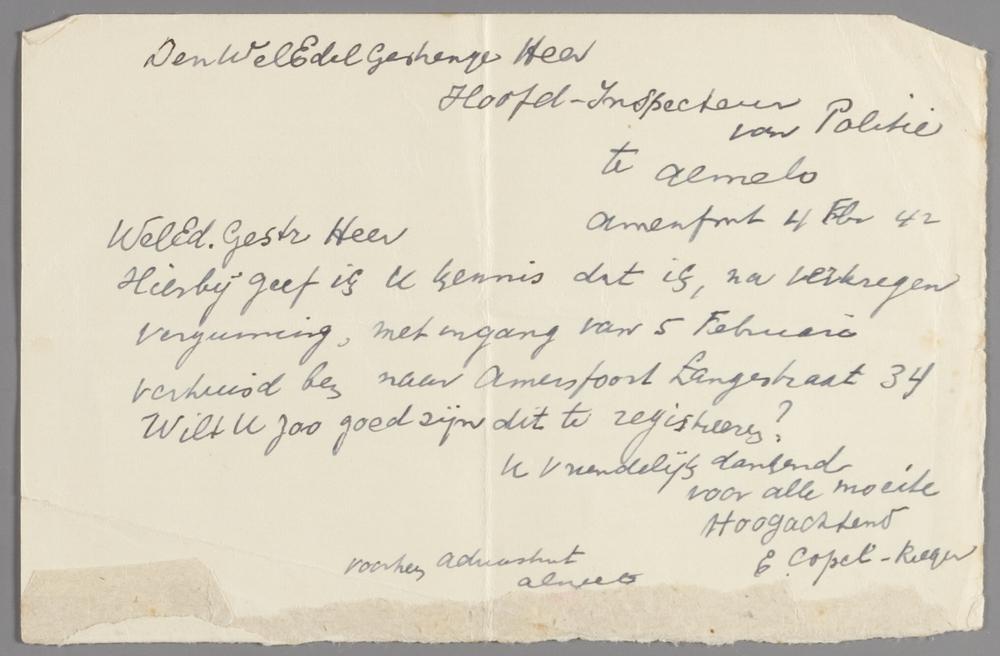 Den WelEdel Gestrenge Heer
Hoofd-Inspecteur
van Politie
te Almelo
Amersfoort 4 Febr 42
WelEd. Gestr Heer
Hierbij geef ik U kennis dat ik, na verkregen
vergunning, met ingang van 5 Februari
verhuisd ben naar Amersfoort Langestraat 34
Wilt U zoo goed zijn dit te registreeren?
U vriendelijk dankend
voor alle moeite
Hoogachtend
E. Copel-Rieger
voorheen
Almelo